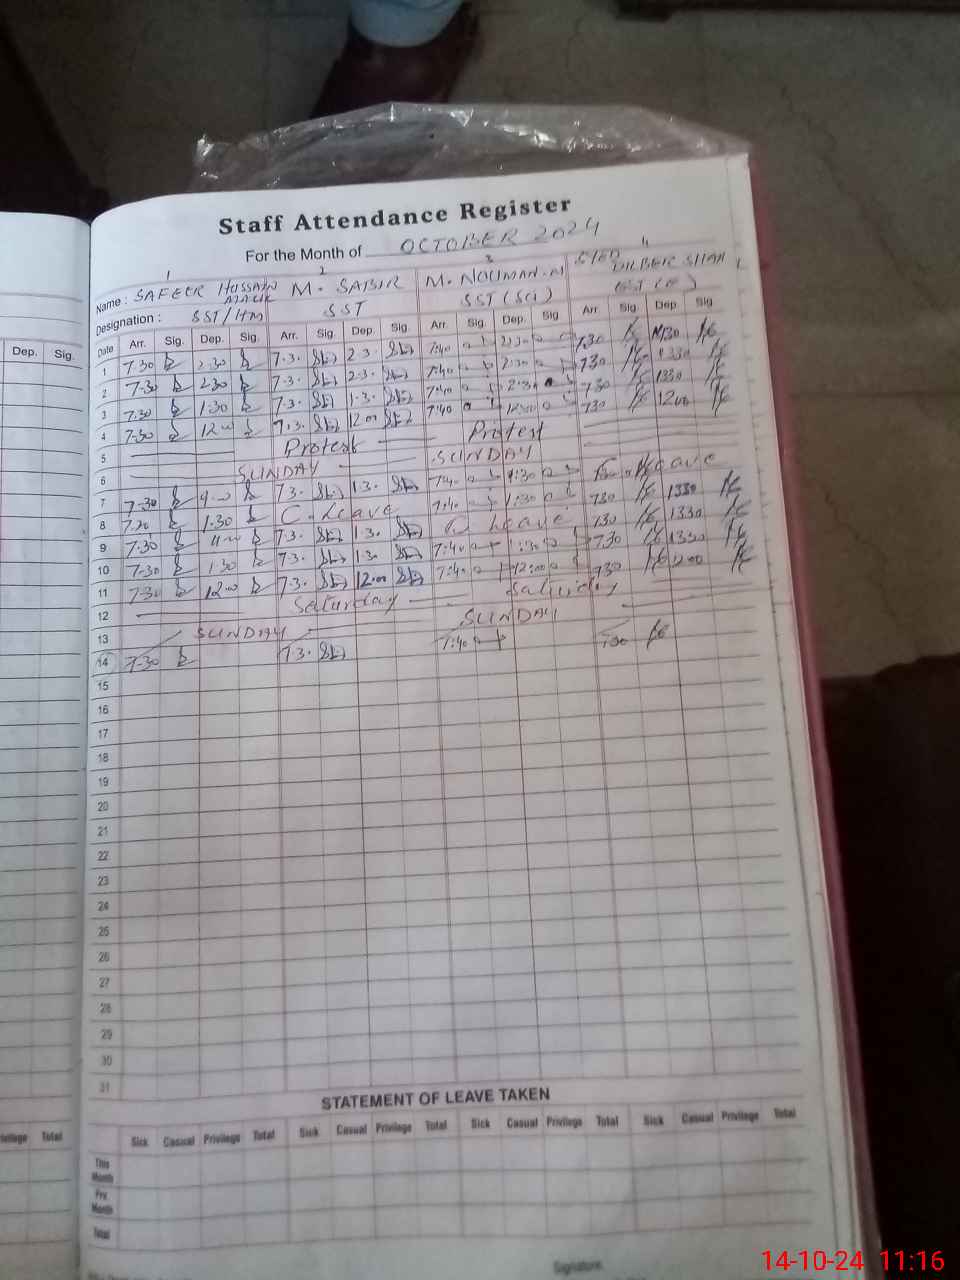 Staff Attendance Register
For the Month of OCTOBER 2024
1 2 3 4
Name : SAFEER HUSSAIN MALIK M. SABIR M. NOUMAN.N SYED DILBER SHAH
Designation : SST/HM SST SST (Sci)
Dep. Sig.
Date Arr. Sig. Dep. Sig. Arr. Sig. Dep. Sig. Arr. Sig. Dep. Sig. Arr. Sig. Dep. Sig.
1 7.30 2.30 7.3. 2.3. 7:40 2:30 7.30
2 7.30 2.30 7.3. 2.3. 7:40 2:30 730 1330
3 7.30 1.30 7.3. 1.3. 7:40 2:30 730 1330
4 7.30 12.00 7.3. 12.00 7:40 12:00 730 1200
5 Protest Protest
6 SUNDAY SUNDAY
7 7.30 7.3. 1.3. 7:40 1:30 Leave
8 7.30 1.30 C. Leave 7:40 1:30 730 1330
9 7.30 7.3. 1.3. Leave 730 1330
10 7.30 1.30 7.3. 1.3. 7:40 1:30 730 1330
11 7.30 12.00 7.3. 12.00 7:40 12:00 730 1200
12 Saturday Saturday
13 SUNDAY SUNDAY
14 7.30 7.3. 7:40 730
15
16
17
18
19
20
21
22
23
24
25
26
27
28
29
30
31
STATEMENT OF LEAVE TAKEN
Total
Sick Casual Privilege Total Sick Casual Privilege Total Sick Casual Privilege Total Sick Casual Privilege Total
This Month
Prv. Month
Total
Signature
14-10-24 11:16